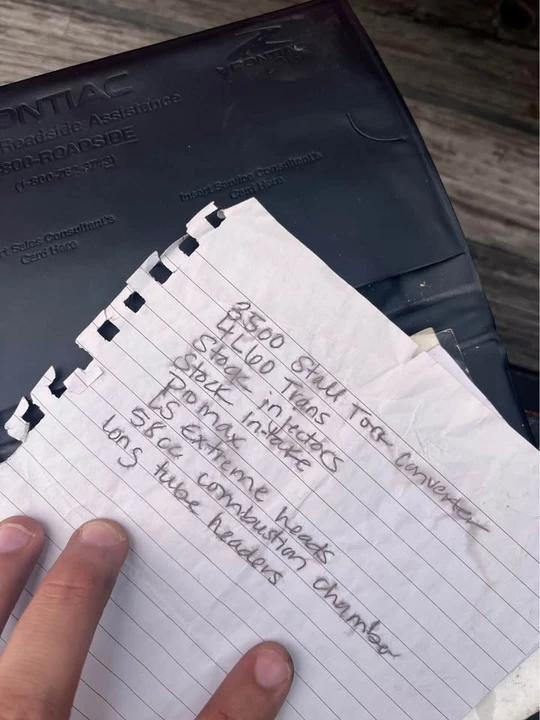 PONTIAC
PONTIAC
Roadside Assistance
800-ROADSIDE
(1-800-762-3743)
Insert Service Consultant's
Card Here
rt Sales Consultant's
Card Here
3500 Stall Torq Converter
4L60 Trans
Stock injectors
Stock intake
Promax
LS Extreme heads
58cc combustion chamber
long tube headers